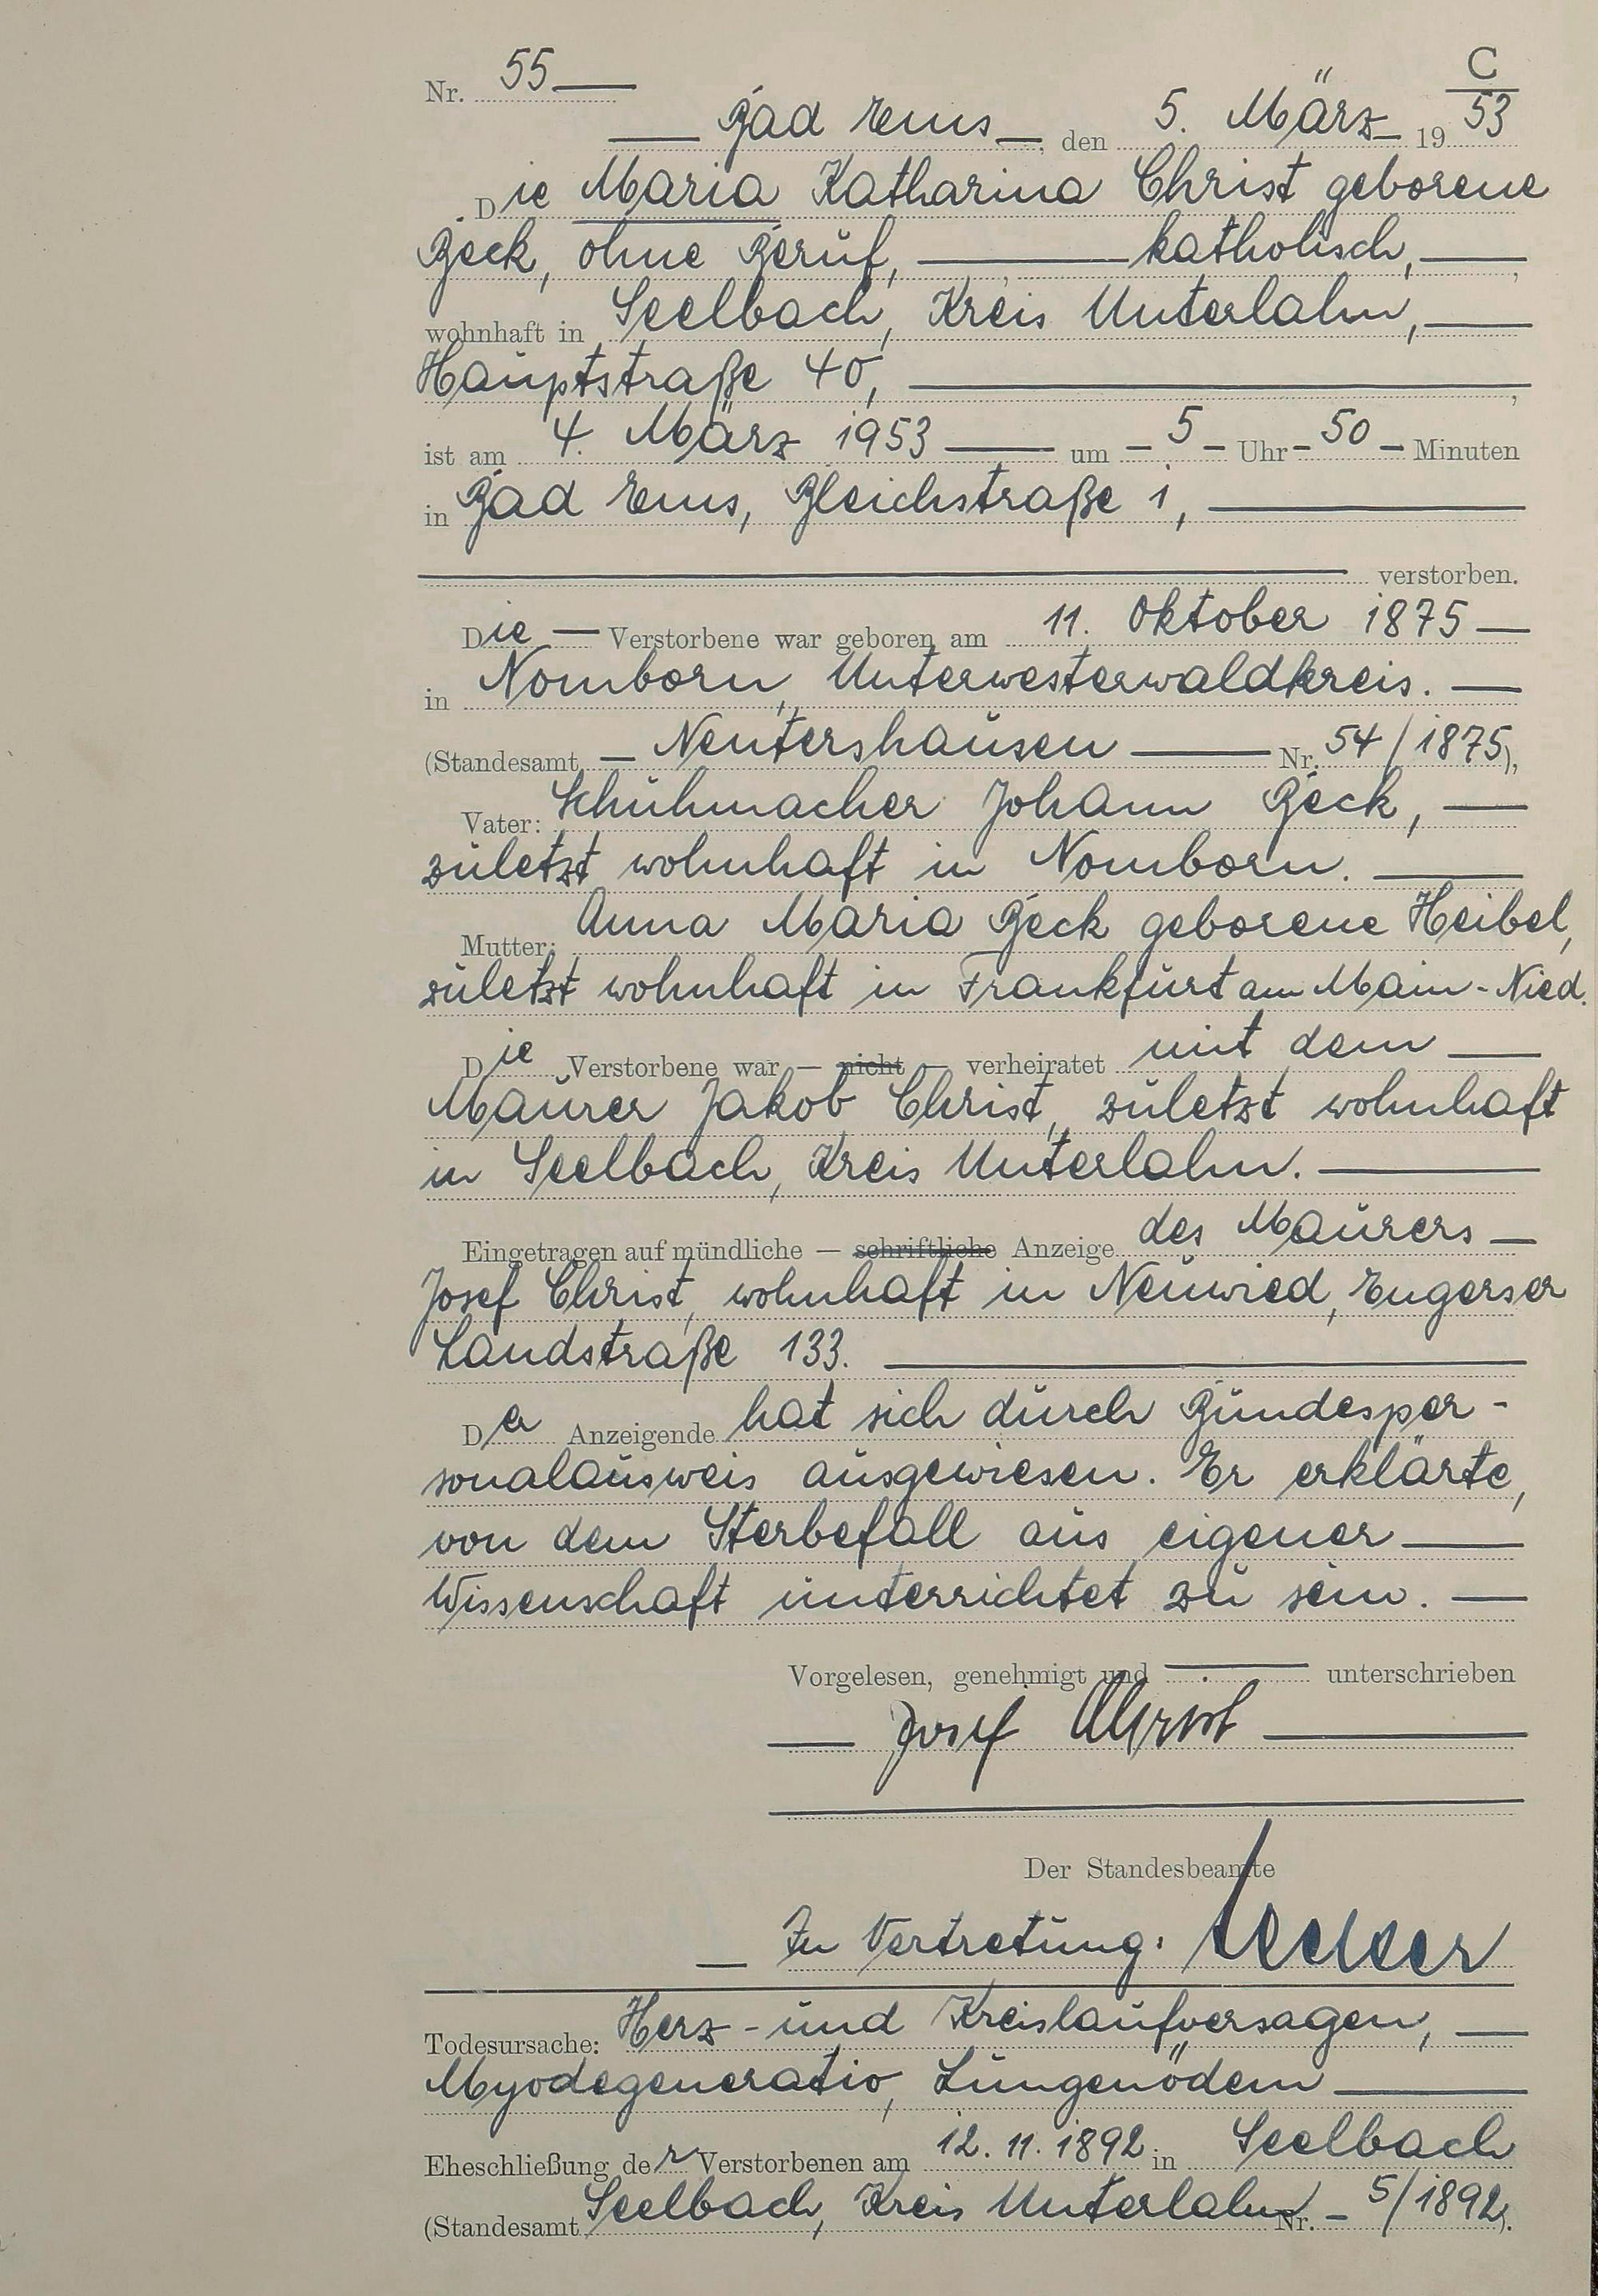 Nr. 55 C
Bad Ems, den 5. März 19 53
Die Maria Katharina Christ geborene
Beck, ohne Beruf, katholisch,
wohnhaft in Seelbach, Kreis Unterlahn,
Hauptstraße 40,
ist am 4. März 1953 um 5 Uhr 50 Minuten
in Bad Ems, Bleichstraße 1,
verstorben.
Die Verstorbene war geboren am 11. Oktober 1875
in Nomborn, Unterwesterwaldkreis.
(Standesamt Nentershausen Nr. 54/1875),
Vater: Schuhmacher Johann Beck,
zuletzt wohnhaft in Nomborn.
Mutter: Anna Maria Beck geborene Heibel,
zuletzt wohnhaft in Frankfurt am Main-Nied.
Die Verstorbene war — nicht — verheiratet mit dem
Maurer Jakob Christ, zuletzt wohnhaft
in Seelbach, Kreis Unterlahn.
Eingetragen auf mündliche — schriftliche Anzeige des Maurers
Josef Christ, wohnhaft in Neuwied, Engerser
Landstraße 133.
Der Anzeigende hat sich durch Bundesper-
sonalausweis ausgewiesen. Er erklärte,
von dem Sterbefall aus eigener
Wissenschaft unterrichtet zu sein.
Vorgelesen, genehmigt und unterschrieben
Josef Christ
Der Standesbeamte
In Vertretung:
Todesursache: Herz- und Kreislaufversagen,
Myodegeneratio, Lungenödem
Eheschließung der Verstorbenen am 12.11.1892 in Seelbach
(Standesamt Seelbach, Kreis Unterlahn Nr. 5/1892).